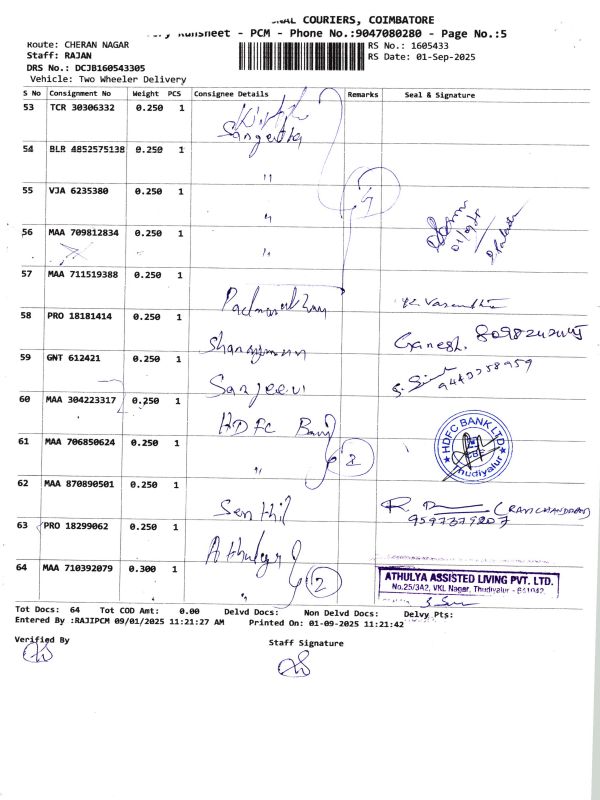 COURIERS, COIMBATORE
Runsheet - PCM - Phone No.:9047080280 - Page No.:5
Route: CHERAN NAGAR
Staff: RAJAN
DRS No.: DCJB160543305
Vehicle: Two Wheeler Delivery
RS No.: 1605433
RS Date: 01-Sep-2025
S No Consignment No Weight PCS Consignee Details Remarks Seal & Signature
53 TCR 30306332 0.250 1
Sangeetha
54 BLR 4852575138 0.250 1 "
55 VJA 6235380 0.250 1 "
56 MAA 709812834 0.250 1 "
57 MAA 711519388 0.250 1
58 PRO 18181414 0.250 1
Ganesh.
59 GNT 612421 0.250 1 Sanjeevi
60 MAA 304223317 0.250 1 HDFC Bank
61 MAA 706850624 0.250 1 " 2
HDFC BANK LTD
Thudiyalur
62 MAA 870890501 0.250 1 Senthil
(RAVICHANDRAN)
63 PRO 18299062 0.250 1 Athulya
64 MAA 710392079 0.300 1 2
ATHULYA ASSISTED LIVING PVT. LTD.
No.25/3A2, VKL Nagar, Thudiyalur - 641042
Tot Docs: 64 Tot COD Amt: 0.00 Delvd Docs: Non Delvd Docs: Delvy Pts:
Entered By :RAJIPCM 09/01/2025 11:21:27 AM Printed On: 01-09-2025 11:21:42
Verified By
Staff Signature